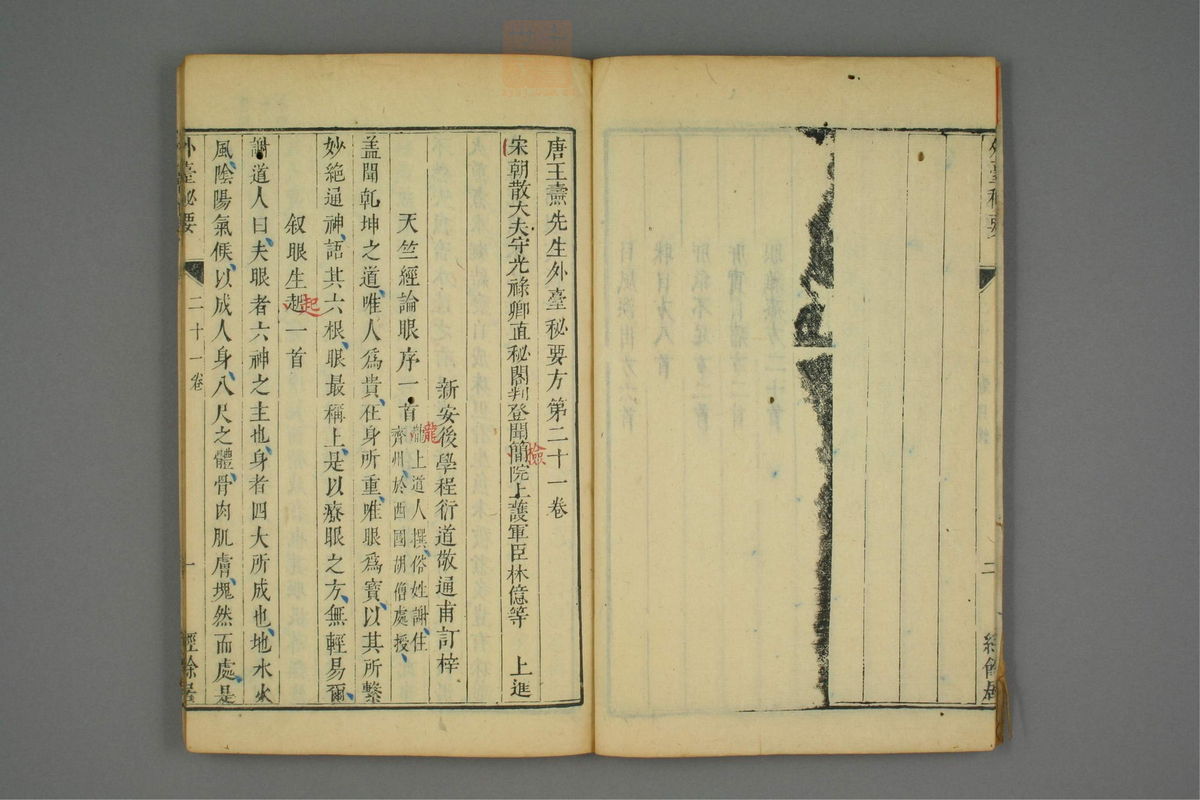 外臺秘要
二
唐王燾先生外臺秘要方第二十一卷
宋朝散大夫守光祿卿直秘閣判登聞簡院上護軍臣林億等 上進
檢
新安後學程衍道敬通甫訂梓
天竺經論眼序一首
龍上道人撰俗姓謝住
齊州於西國胡僧處授
龍
蓋聞乾坤之道唯人爲貴在身所重唯眼爲寶以其所繫
妙絶通神語其六根眼最稱上是以療眼之方無輕易爾
叙眼生趂一首
起
謝道人曰夫眼者六神之主也身者四大所成也地水火
風陰陽氣候以成人身八尺之體骨肉肌膚塊然而處是
外臺秘要
二十一卷
一
經餘居